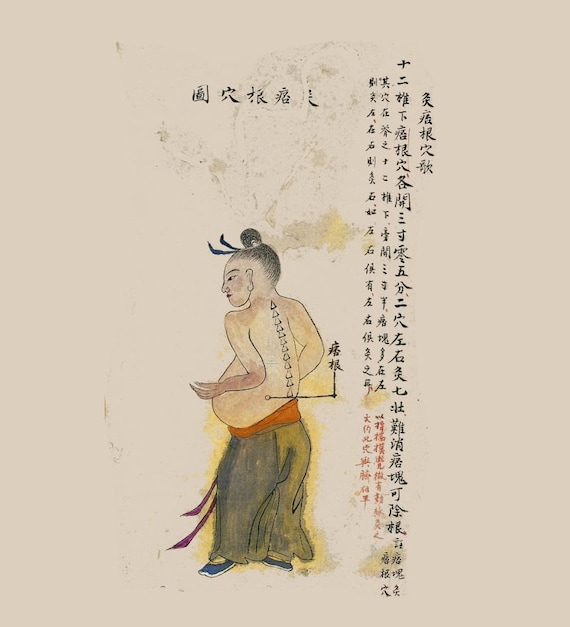 灸痞根穴歌
十二椎下痞根穴、各開三寸零五分、二穴左右灸七壯、難消痞塊可除根、註
痞塊灸
痞根穴
其穴在脊之十二椎下、旁開三寸半、痞塊多在左
則灸左、在右則灸右、如左右俱有、左右俱灸之
以指揣摸覺微有動脉灸之
大約此穴與臍相平
痞根穴圖
痞根